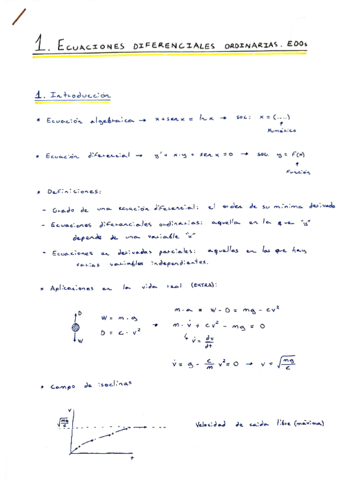 1. ECUACIONES DIFERENCIALES ORDINARIAS. EDOs
1. Introducción
* Ecuación algebraica → x + sen x = ln x → sol: x = (....)
Numérico
* Ecuación diferencial → y' + x·y + sen x = 0 → sol y = f(x)
Función
* Definiciones:
- Grado de una ecuación diferencial: el orden de su mínima derivada
- Ecuaciones diferenciales ordinarias: aquella en la que "y"
depende de una variable "x"
- Ecuaciones en derivadas parciales: aquellas en las que hay
varias variables independientes.
* Aplicaciones en la vida real (EXTRA):
D
W
W = m·g
D = c·v²
→
m·a = W - D = mg - cv²
m·v̇ + cv² - mg = 0
v̇ = dv/dt
v̇ = g - c/m v² = 0 → v = √(mg/c)
* Campo de isoclinas
v
√(mg/c)
t
Velocidad de caída libre (máxima)